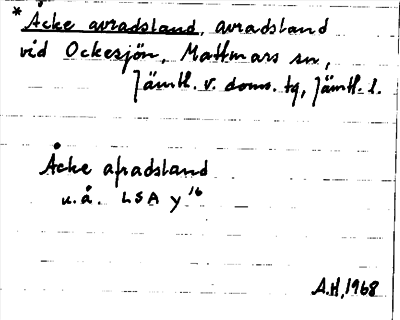 * Åcke avradsland, avradsland
vid Ockesjön, Mattmars sn,
Jämtl. v. doms. tg, Jämtl. l.
Åcke afradsland
u.å. LSA Y 16
A.H, 1968